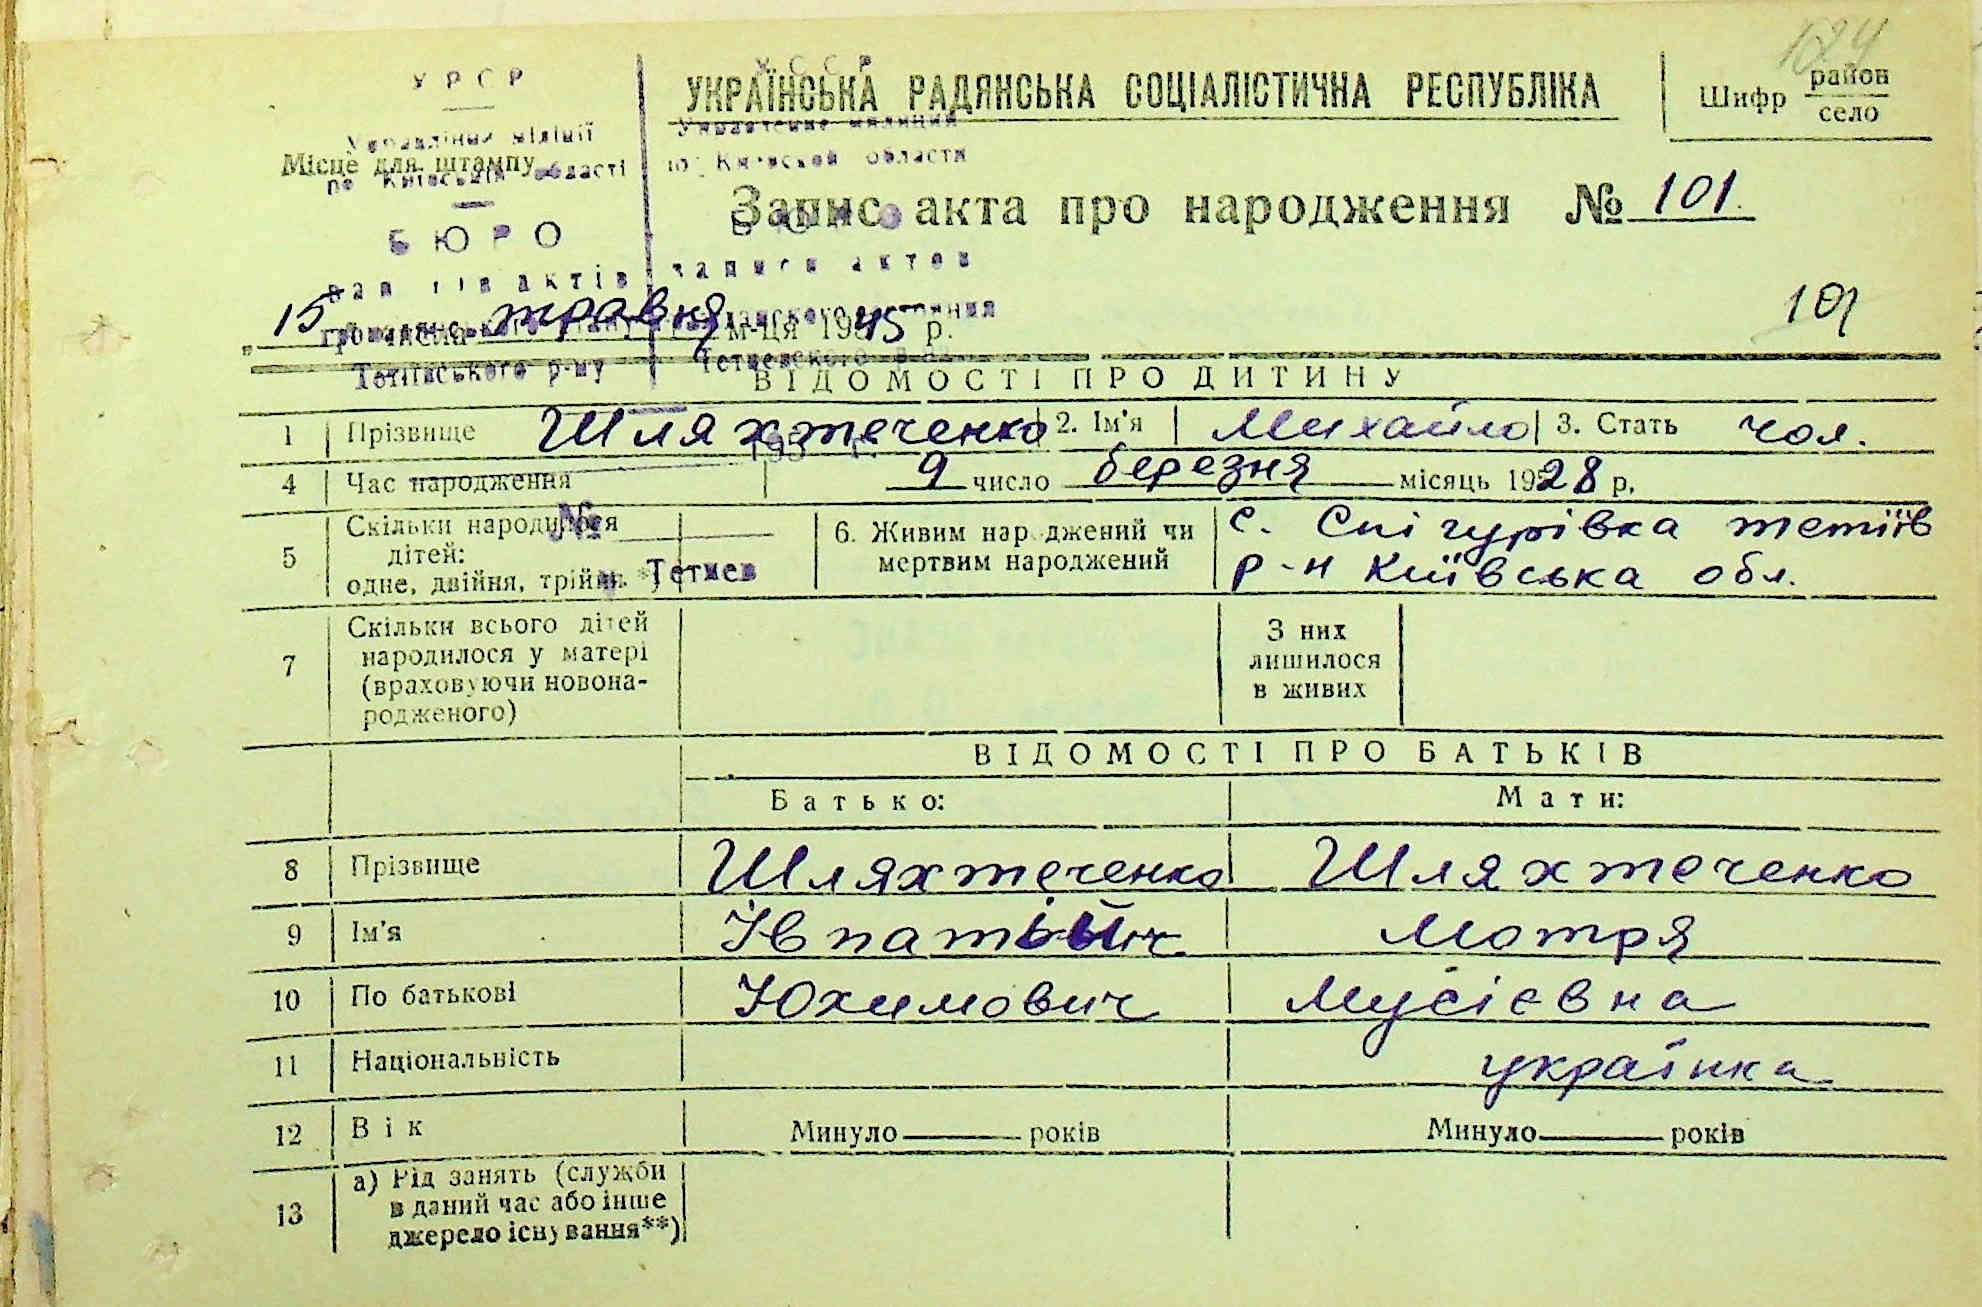 124
УРСР
УССР
УКРАЇНСЬКА РАДЯНСЬКА СОЦІАЛІСТИЧНА РЕСПУБЛІКА
Шифр район
село
Управління міліції
Управление милиции
Місце для штампу
по Київській області
по Киевской области
Запис акта про народження № 101.
БЮРО
БЮРО
записів актів
записи актов
101
„ 15 числа травня м-ця 1945 р.
громадянського
гражданского
Тетіївського р-ну
Тетиевского
ВІДОМОСТІ ПРО ДИТИНУ
1 Прізвище Шляхтеченко 2. Ім'я Михайло 3. Стать чол.
195 г.
4 Час народження 9 число березня місяць 1928 р.
5 Скільки народилося дітей: одне, двійня, трійня *)
№
Тетиев
6. Живим народжений чи мертвим народжений
с. Снігурівка тетіїв
р-н Київська обл.
7 Скільки всього дітей народилося у матері (враховуючи новонародженого)
З них лишилося в живих
ВІДОМОСТІ ПРО БАТЬКІВ
Батько: Мати:
8 Прізвище Шляхтеченко Шляхтеченко
9 Ім'я Івпатій Мотря
10 По батькові Юхимович Мусієвна
11 Національність українка
12 Вік Минуло років Минуло років
13 а) Рід занять (служби
в даний час або інше
джерело існування**)